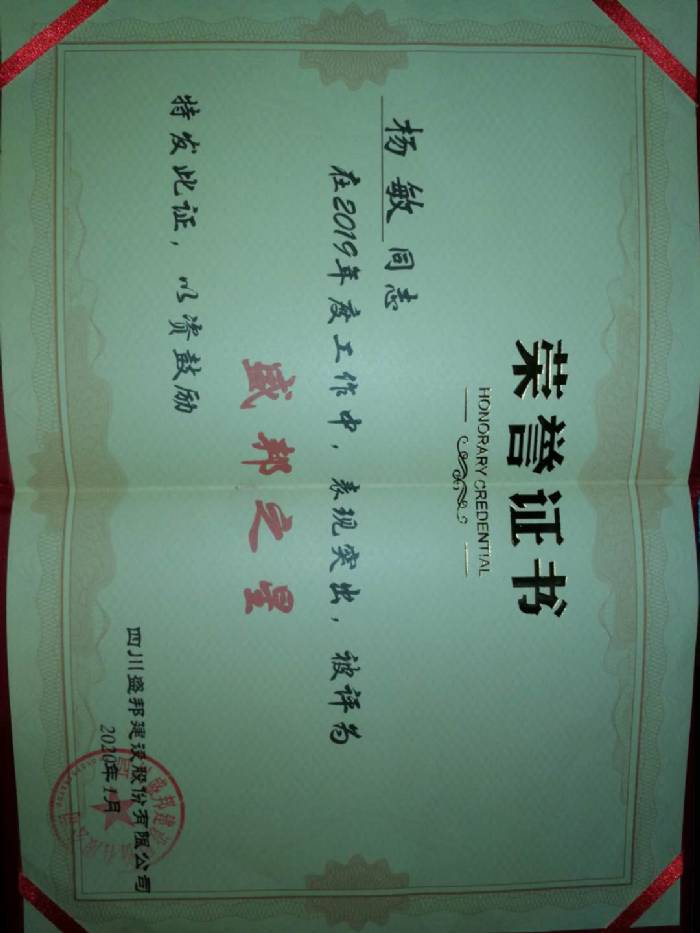 荣誉证书
HONORARY CREDENTIAL
杨敏同志
在2019年度工作中，表现突出，被评为
盛邦之星
特发此证，以资鼓励
四川盛邦建设股份有限公司
2020年1月